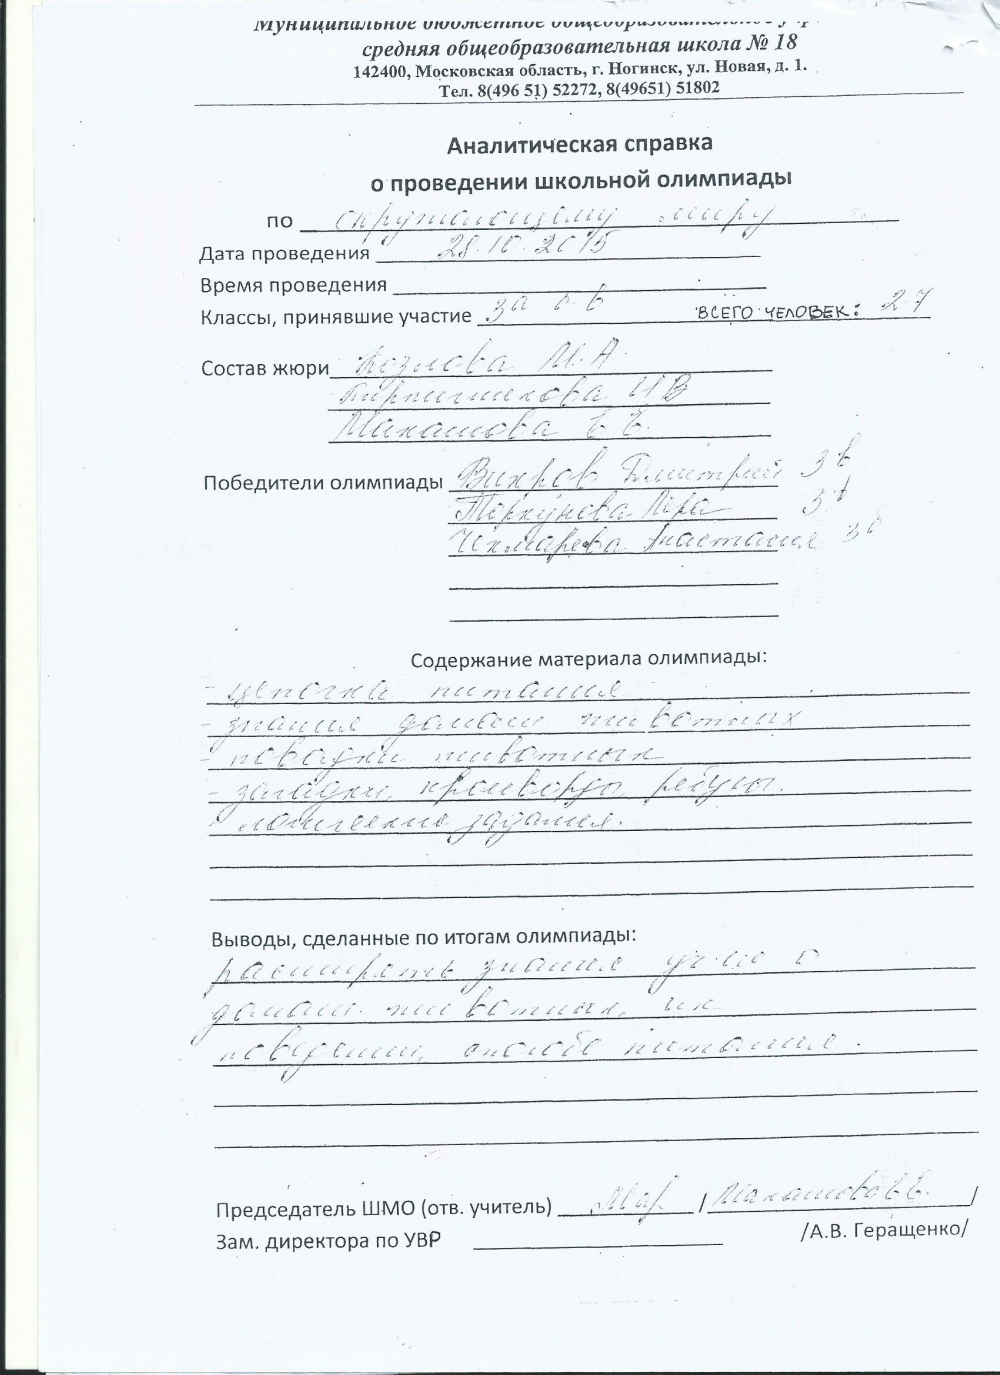 Муниципальное бюджетное общеобразовательное
средняя общеобразовательная школа № 18
142400, Московская область, г. Ногинск, ул. Новая, д. 1.
Тел. 8(496 51) 52272, 8(49651) 51802
Аналитическая справка
о проведении школьной олимпиады
по окружающему миру
Дата проведения 28.10.2015
Время проведения
Классы, принявшие участие 3а б в ВСЕГО ЧЕЛОВЕК: 27
Состав жюри Козлова М.А.
Кирпичникова И В
Макашова Е Е.
Победители олимпиады Вихров Дмитрий 3в
Торкунова Лера 3в
Чихмарева Анастасия 3б
Содержание материала олимпиады:
- цепочки питания
- знания домаш животных
- повадки животных
- загадки, кроссворды, ребусы.
- логические задания.
Выводы, сделанные по итогам олимпиады:
расширять знания уч-ся о
домаш. животных, их
поведении, способе питания.
Председатель ШМО (отв. учитель) / Макашова Е.Е. /
Зам. директора по УВР /А.В. Геращенко/